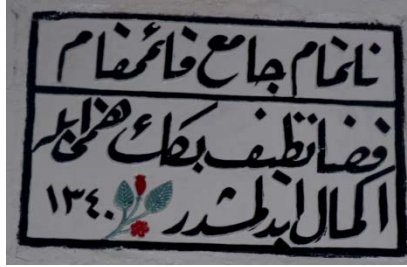 ناتمام جامع قائمقام
قضا نظيف بك ك همتی ايله
اكمال ايدلمشدر ١٣٤٠